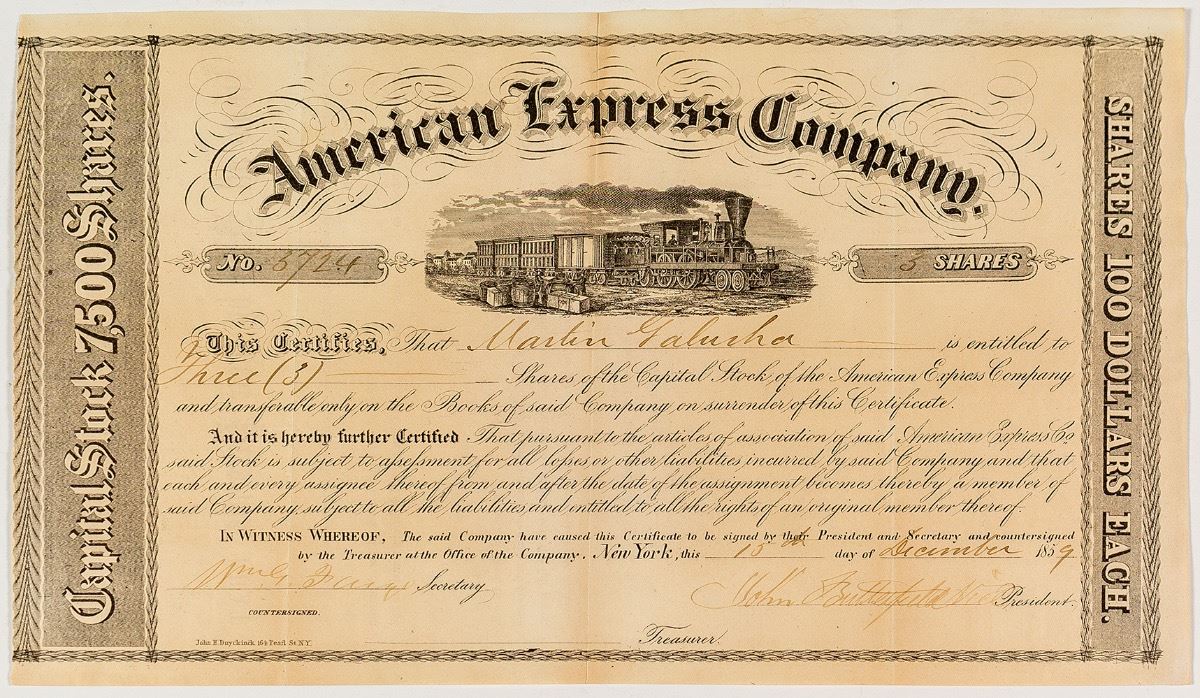 American Express Company.
Capital Stock 7,500 Shares.
SHARES 100 DOLLARS EACH.
No. 3724
3 SHARES
This Certifies, That Martin Galusha is entitled to
Three (3) Shares of the Capital Stock, of the American Express Company
and transferable only on the Books of said Company, on surrender of this Certificate.
And it is hereby further Certified That pursuant to the articles of association of said American Express Co
said Stock is subject to assessment for all losses or other liabilities incurred by said Company and that
each and every assignee thereof from and after the date of the assignment becomes thereby a member of
said Company, subject to all the liabilities and entitled to all the rights of an original member thereof.
IN WITNESS WHEREOF, The said Company have caused this Certificate to be signed by their President and Secretary and countersigned
by the Treasurer at the Office of the Company, New York, this 15th day of December 1859
Wm G. Fargo Secretary
John Butterfield Vice President.
COUNTERSIGNED.
John E. Duyckinck 164 Pearl St. N.Y.
Treasurer.